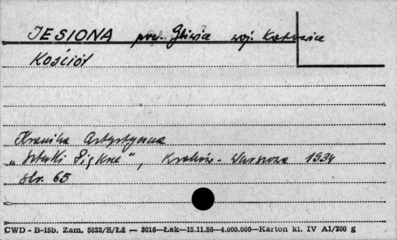 JESIONA pow. Gliwice woj. Katowice
Kościół
Kronika Artystyczna
„Sztuki Piękne", Kraków-Warszawa 1934
str. 65
CWD - B-15b. Zam. 5823/S/Łź — 3016—Łak—15.11.56—4.000.000—Karton kl. IV A1/200 g